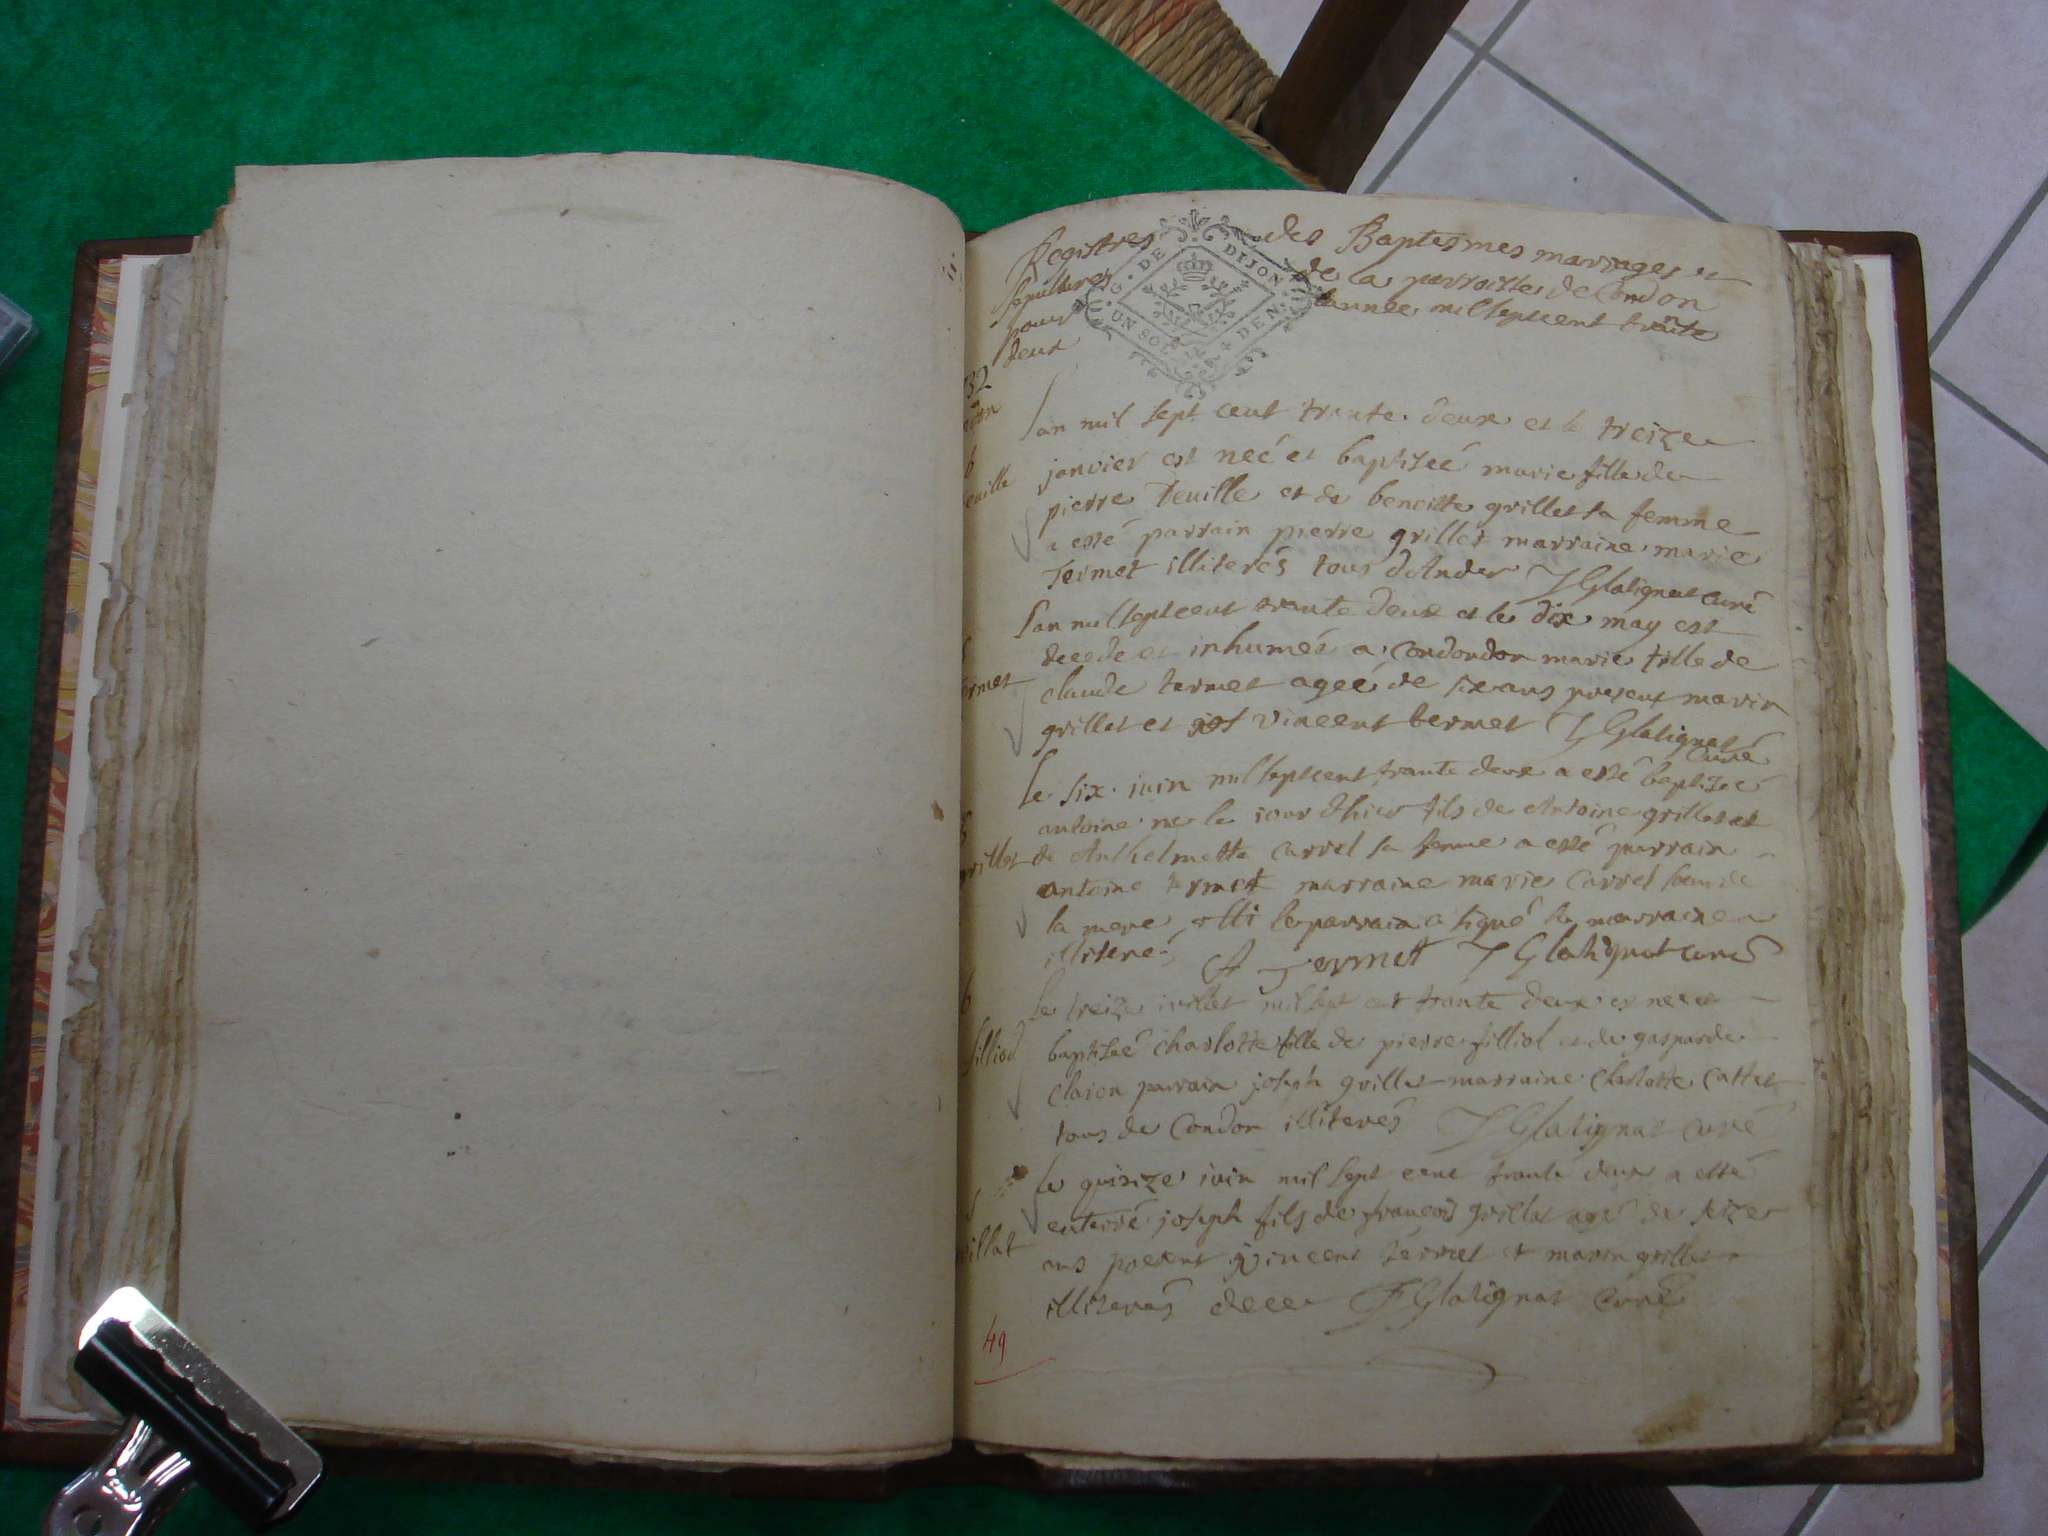 Registres des Baptesmes mariages et
sepultures de la parroisse de Condon
pour l'année mil sept cent trante
deux
G. DE DIJON
UN SOL
DEN.
32
b
euille
Lan mil sept cent trante deux et le treize
janvier est neé et baptiseé marie fille de
pierre teuille et de benoitte grillet sa femme
a esté parrain pierre grillet marraine marie
Termet illiterés tous dAnder J Glatignat curé
Lan mil sept cent trante deux et le dix may est
decedeé et inhumeé a Condon marie fille de
S
ermet
claude termet ageé de six ans presents marin
grillet et vincent termet J Glatignat
curé
Le six juin mil sept cent trante deux a esté baptisé
antoine ne le jour d'hier fils de Antoine grillet et
b
grillet
de Anthelmette Carrel sa femme a esté parrain
antoine termet marraine marie Carrel soeur de
la mere le parrain a signé la marraine
illiteré
A Termet J Glatignat curé
b
filliod
Le treize juillet mil sept cent trante deux es neé et
baptiseé charlotte fille de pierre filliol et de gasparde
claron parrain joseph grillet marraine Charlotte Cattet
tous de Condon illiterés J Glatignat curé
S
grillat
Le quinze juin mil sept cent trante deux a esté
enterré joseph fils de francois grillat agé de seize
ans present vincent termet et marin grillet
illiterés J Glatignat Curé
49